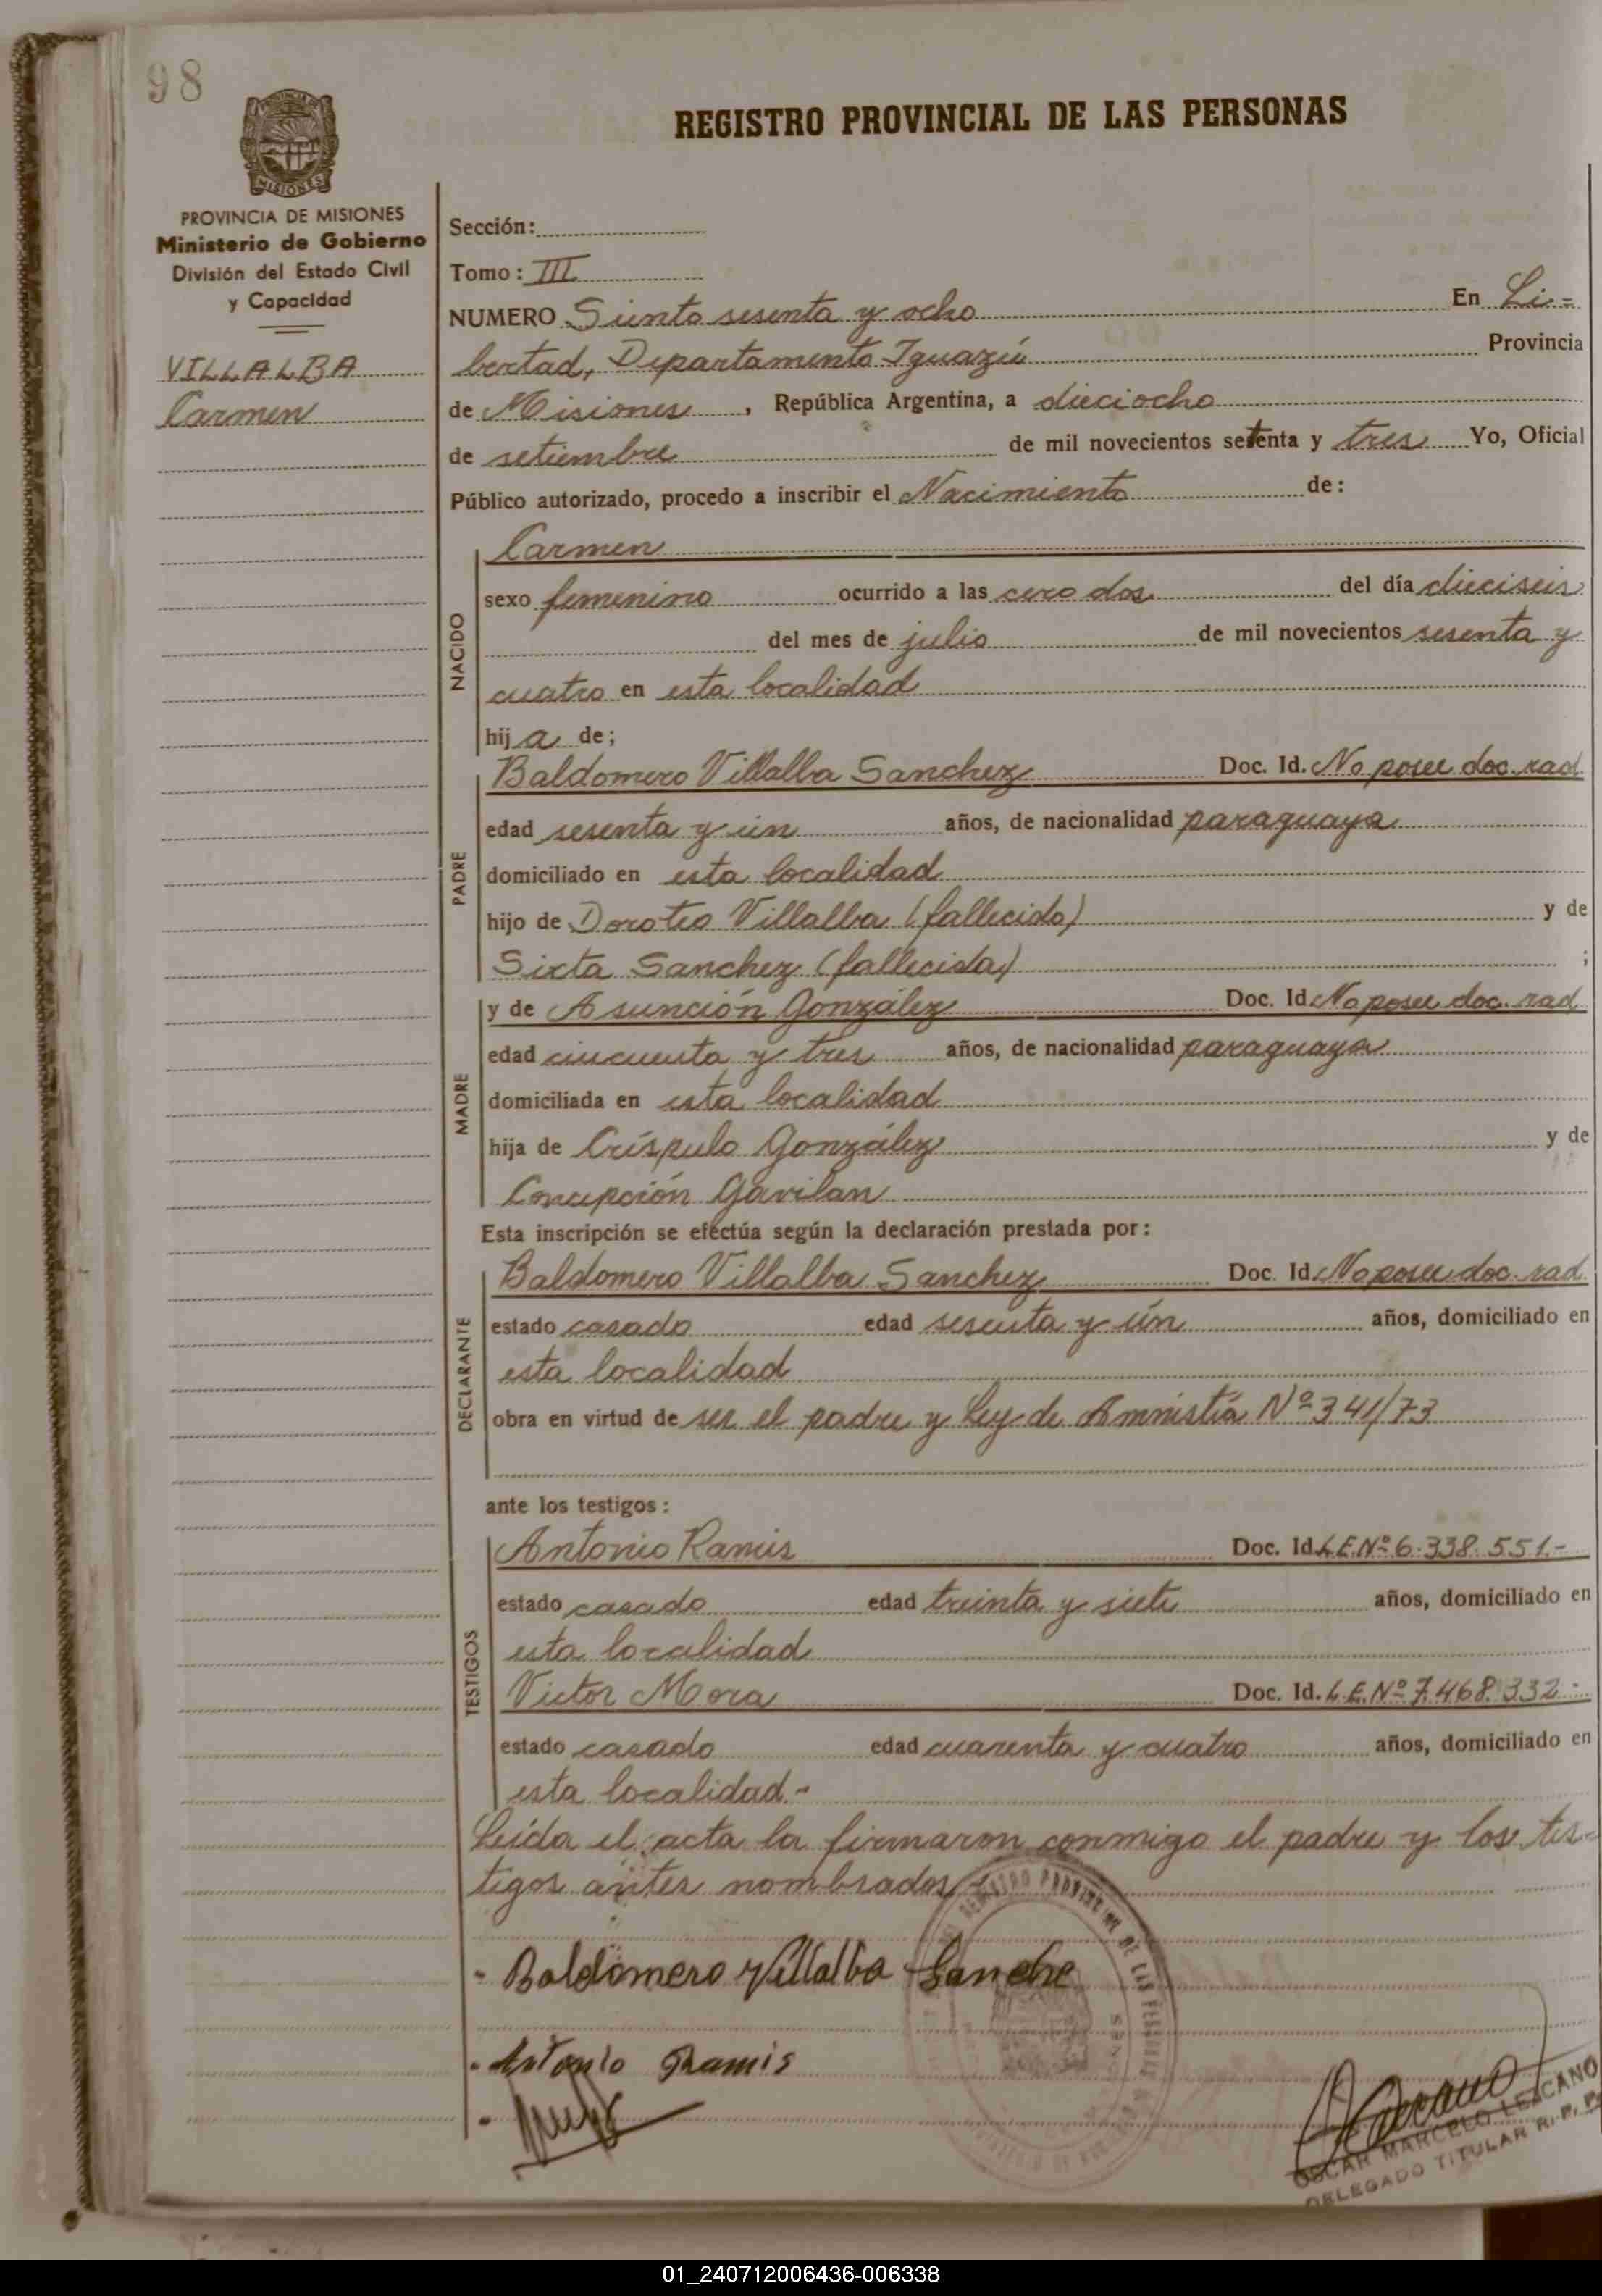 98
PROVINCIA DE MISIONES
Ministerio de Gobierno
División del Estado Civil
y Capacidad
VILLALBA
Carmen
REGISTRO PROVINCIAL DE LAS PERSONAS
Sección:
Tomo: III
NUMERO Siento sesenta y ocho En Li-
bertad, Departamento Iguazú Provincia
de Misiones, República Argentina, a dieciocho
de setiembre de mil novecientos setenta y tres Yo, Oficial
Público autorizado, procedo a inscribir el Nacimiento de:
NACIDO
Carmen
sexo femenino ocurrido a las cero dos del día dieciseis
del mes de julio de mil novecientos sesenta y
cuatro en esta localidad
hija de;
PADRE
Baldomero Villalba Sanchez Doc. Id. No posee doc. rad.
edad sesenta y ún años, de nacionalidad paraguaya
domiciliado en esta localidad
hijo de Doroteo Villalba (fallecido) y de
Sixta Sanchez (fallecida) ;
MADRE
y de Asunción González Doc. Id. No posee doc. rad
edad cincuenta y tres años, de nacionalidad paraguaya
domiciliada en esta localidad
hija de Críspulo González y de
Concepción Gavilan
Esta inscripción se efectúa según la declaración prestada por:
DECLARANTE
Baldomero Villalba Sanchez Doc. Id. No posee doc. rad.
estado casado edad sesenta y ún años, domiciliado en
esta localidad
obra en virtud de ser el padre y Ley de Amnistía Nº 341/73
ante los testigos:
TESTIGOS
Antonio Ramis Doc. Id. L.E.Nº 6.338.551.-
estado casado edad treinta y siete años, domiciliado en
esta localidad
Victor Mora Doc. Id. L.E.Nº 7.468.332.-
estado casado edad cuarenta y cuatro años, domiciliado en
esta localidad.-
Leída el acta la firmaron conmigo el padre y los tes-
tigos antes nombrados.
- Baldomero Villalba Sanche
- Antonio Ramis
OSCAR MARCELO LEZCANO
DELEGADO TITULAR R. P. P.
01_240712006436-006338